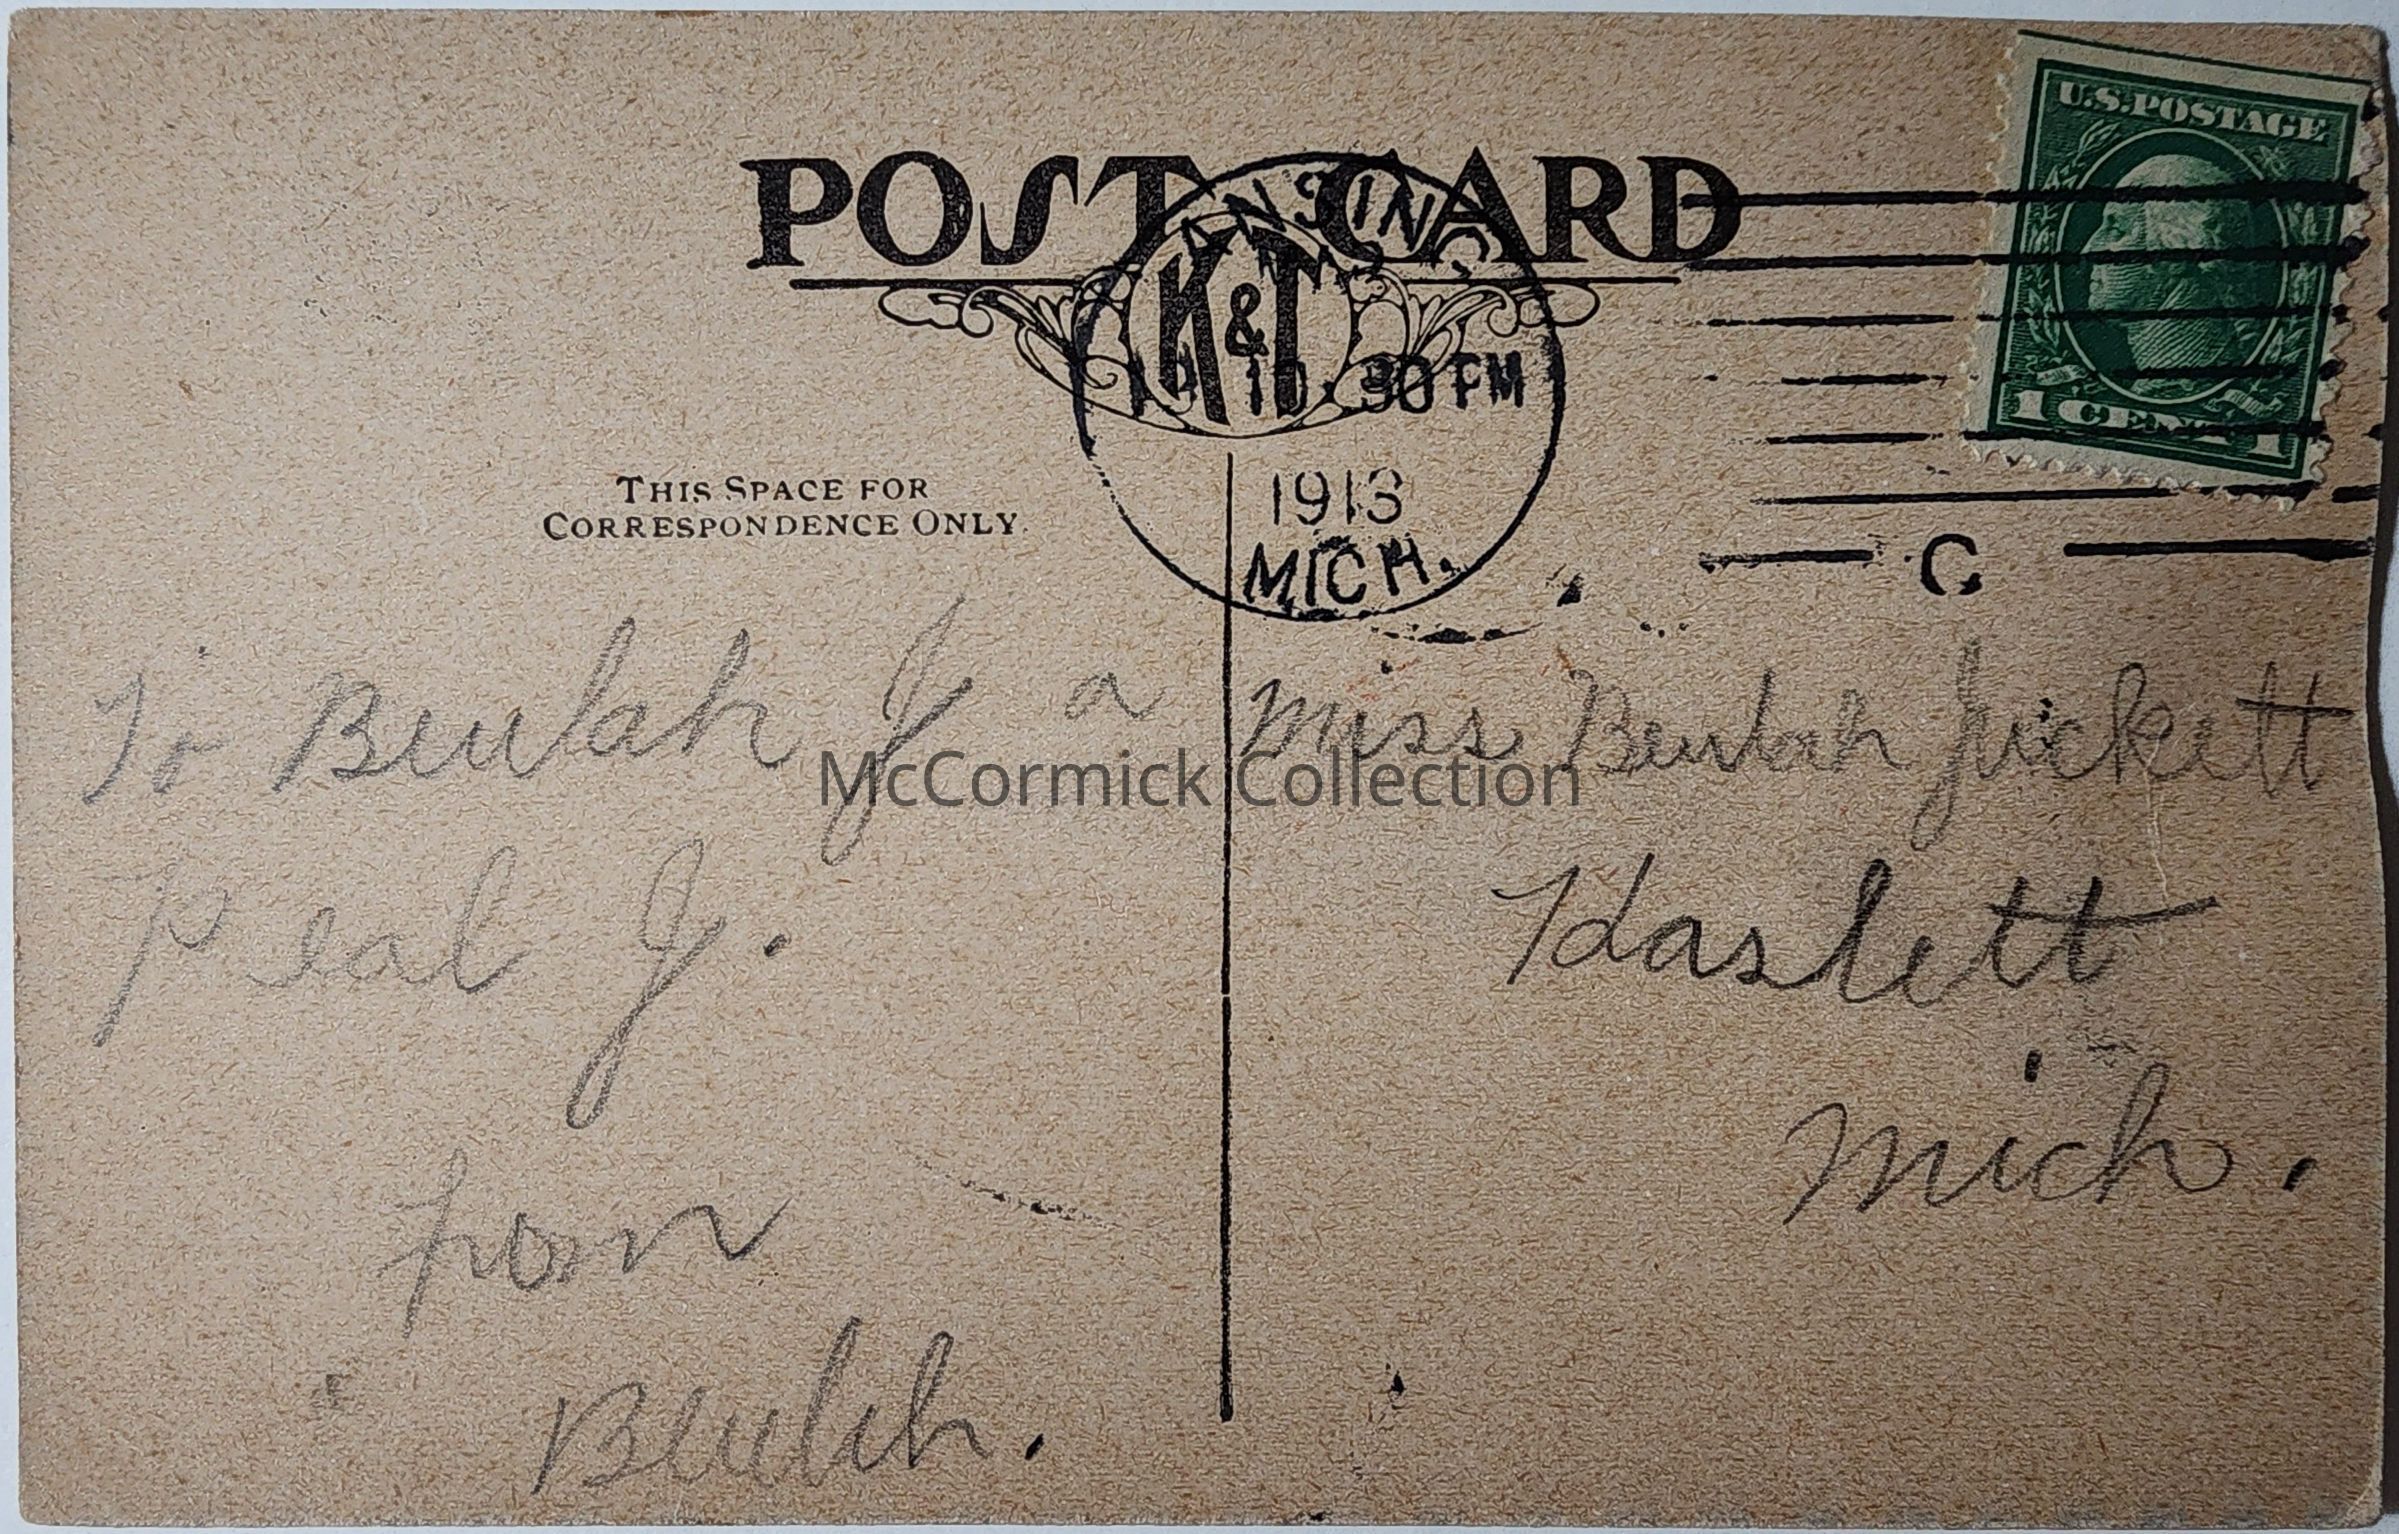 U.S. POSTAGE
1 CENT 1
POST CARD
K & T
LANSING
10.30 PM
1913
MICH.
C
THIS SPACE FOR
CORRESPONDENCE ONLY.
To Beulah J a
Peal J.
from
Beulah.
Miss Beulah Juckett
Haslett
Mich.
McCormick Collection